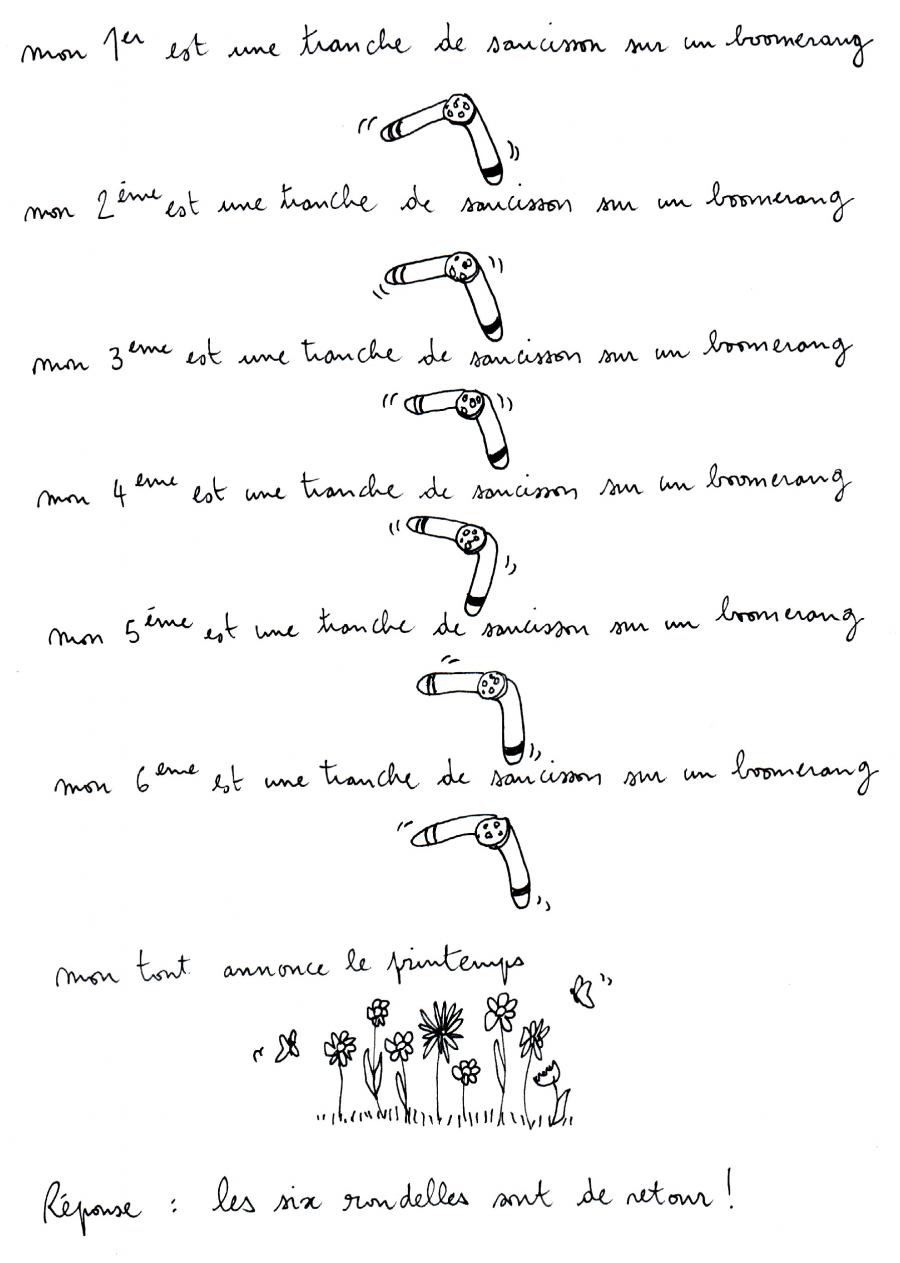 mon 1er est une tranche de saucisson sur un boomerang
mon 2ème est une tranche de saucisson sur un boomerang
mon 3eme est une tranche de saucisson sur un boomerang
mon 4eme est une tranche de saucisson sur un boomerang
mon 5ème est une tranche de saucisson sur un boomerang
mon 6eme est une tranche de saucisson sur un boomerang
mon tout annonce le printemps
Réponse : les six rondelles sont de retour !